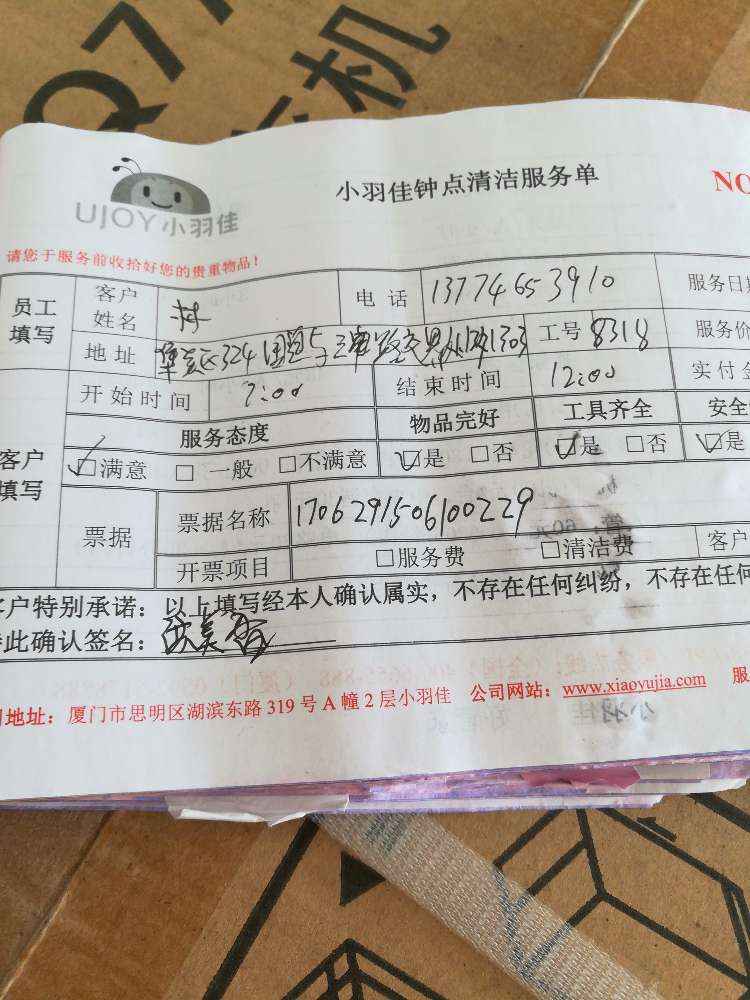 Q7
机
UJOY小羽佳
小羽佳钟点清洁服务单
NO
请您于服务前收拾好您的贵重物品！
员工填写
客户姓名
林
电话
13774653910
服务日期
地址
324国道与
路交界处
1303
工号
8318
服务价
开始时间
7:00
结束时间
12:00
实付金
客户填写
服务态度
物品完好
工具齐全
安全
✓□满意 □一般 □不满意
☑是 □否
☑是 □否
☑是
票据
票据名称
1706291506100229
开票项目
□服务费
□清洁费
客户
客户特别承诺：以上填写经本人确认属实，不存在任何纠纷，不存在任何
此确认签名：
地址：厦门市思明区湖滨东路 319 号 A 幢 2 层小羽佳 公司网站：www.xiaoyujia.com 服